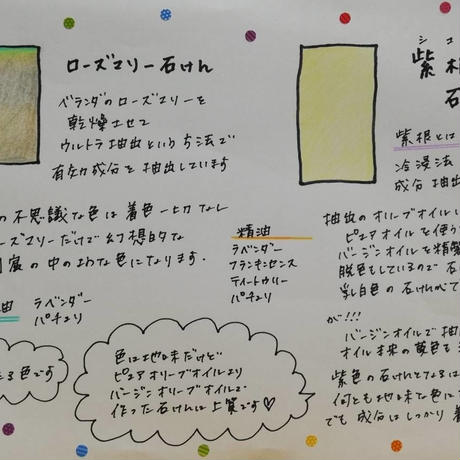 ローズマリー石けん
ベランダのローズマリーを
乾燥させて
ウルトラ抽出という方法で
有効成分を抽出しています
の不思議な色は着色一切なし
ーズマリーだけで幻想的な
の中のような色になります.
油
ラベンダー
パチュリ
る色です
精油
ラベンダー
フランキンセンス
ティートゥリー
パチュリ
色は地味だけど
ピュアオリーブオイルより
バージンオリーブオイルで
作った石けんは上質です♡
シコ
紫根
石
紫根とは
冷浸法
成分抽出
抽出のオリーブオイルい
ピュアオイルを使う
バージンオイルを精製
脱色もしているので石
乳白色の石けんがで
が!!!
バージンオイルで抽
オイル本来の黄色を
紫色の石けんとなるには
何とも地味な色に
でも成分はしっかり着